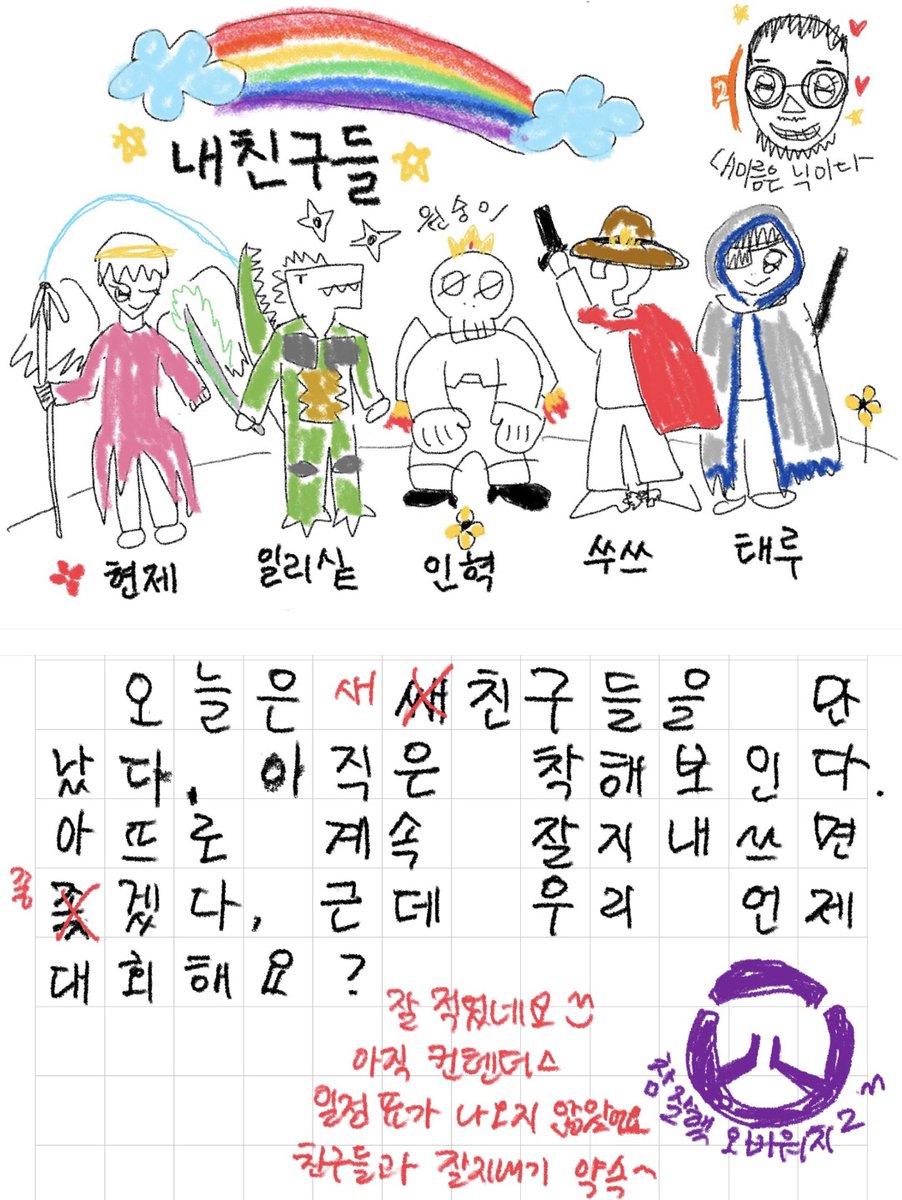 내친구들
2
내이름은 닉이다
원숭이
?
현제
일리싵
인혁
쑤쓰
태루
오늘은 새 쌔친구들을 만
났다. 아직은 착해보인다.
아뜨로 계속 잘지내쓰면
좋 좢겠다. 근데 우리 언제
대회해요?
잘 적었네요
아직 컨텐더스
일정 표가 나오지 않았어요
친구들과 잘지내기 약속~
오버워치2